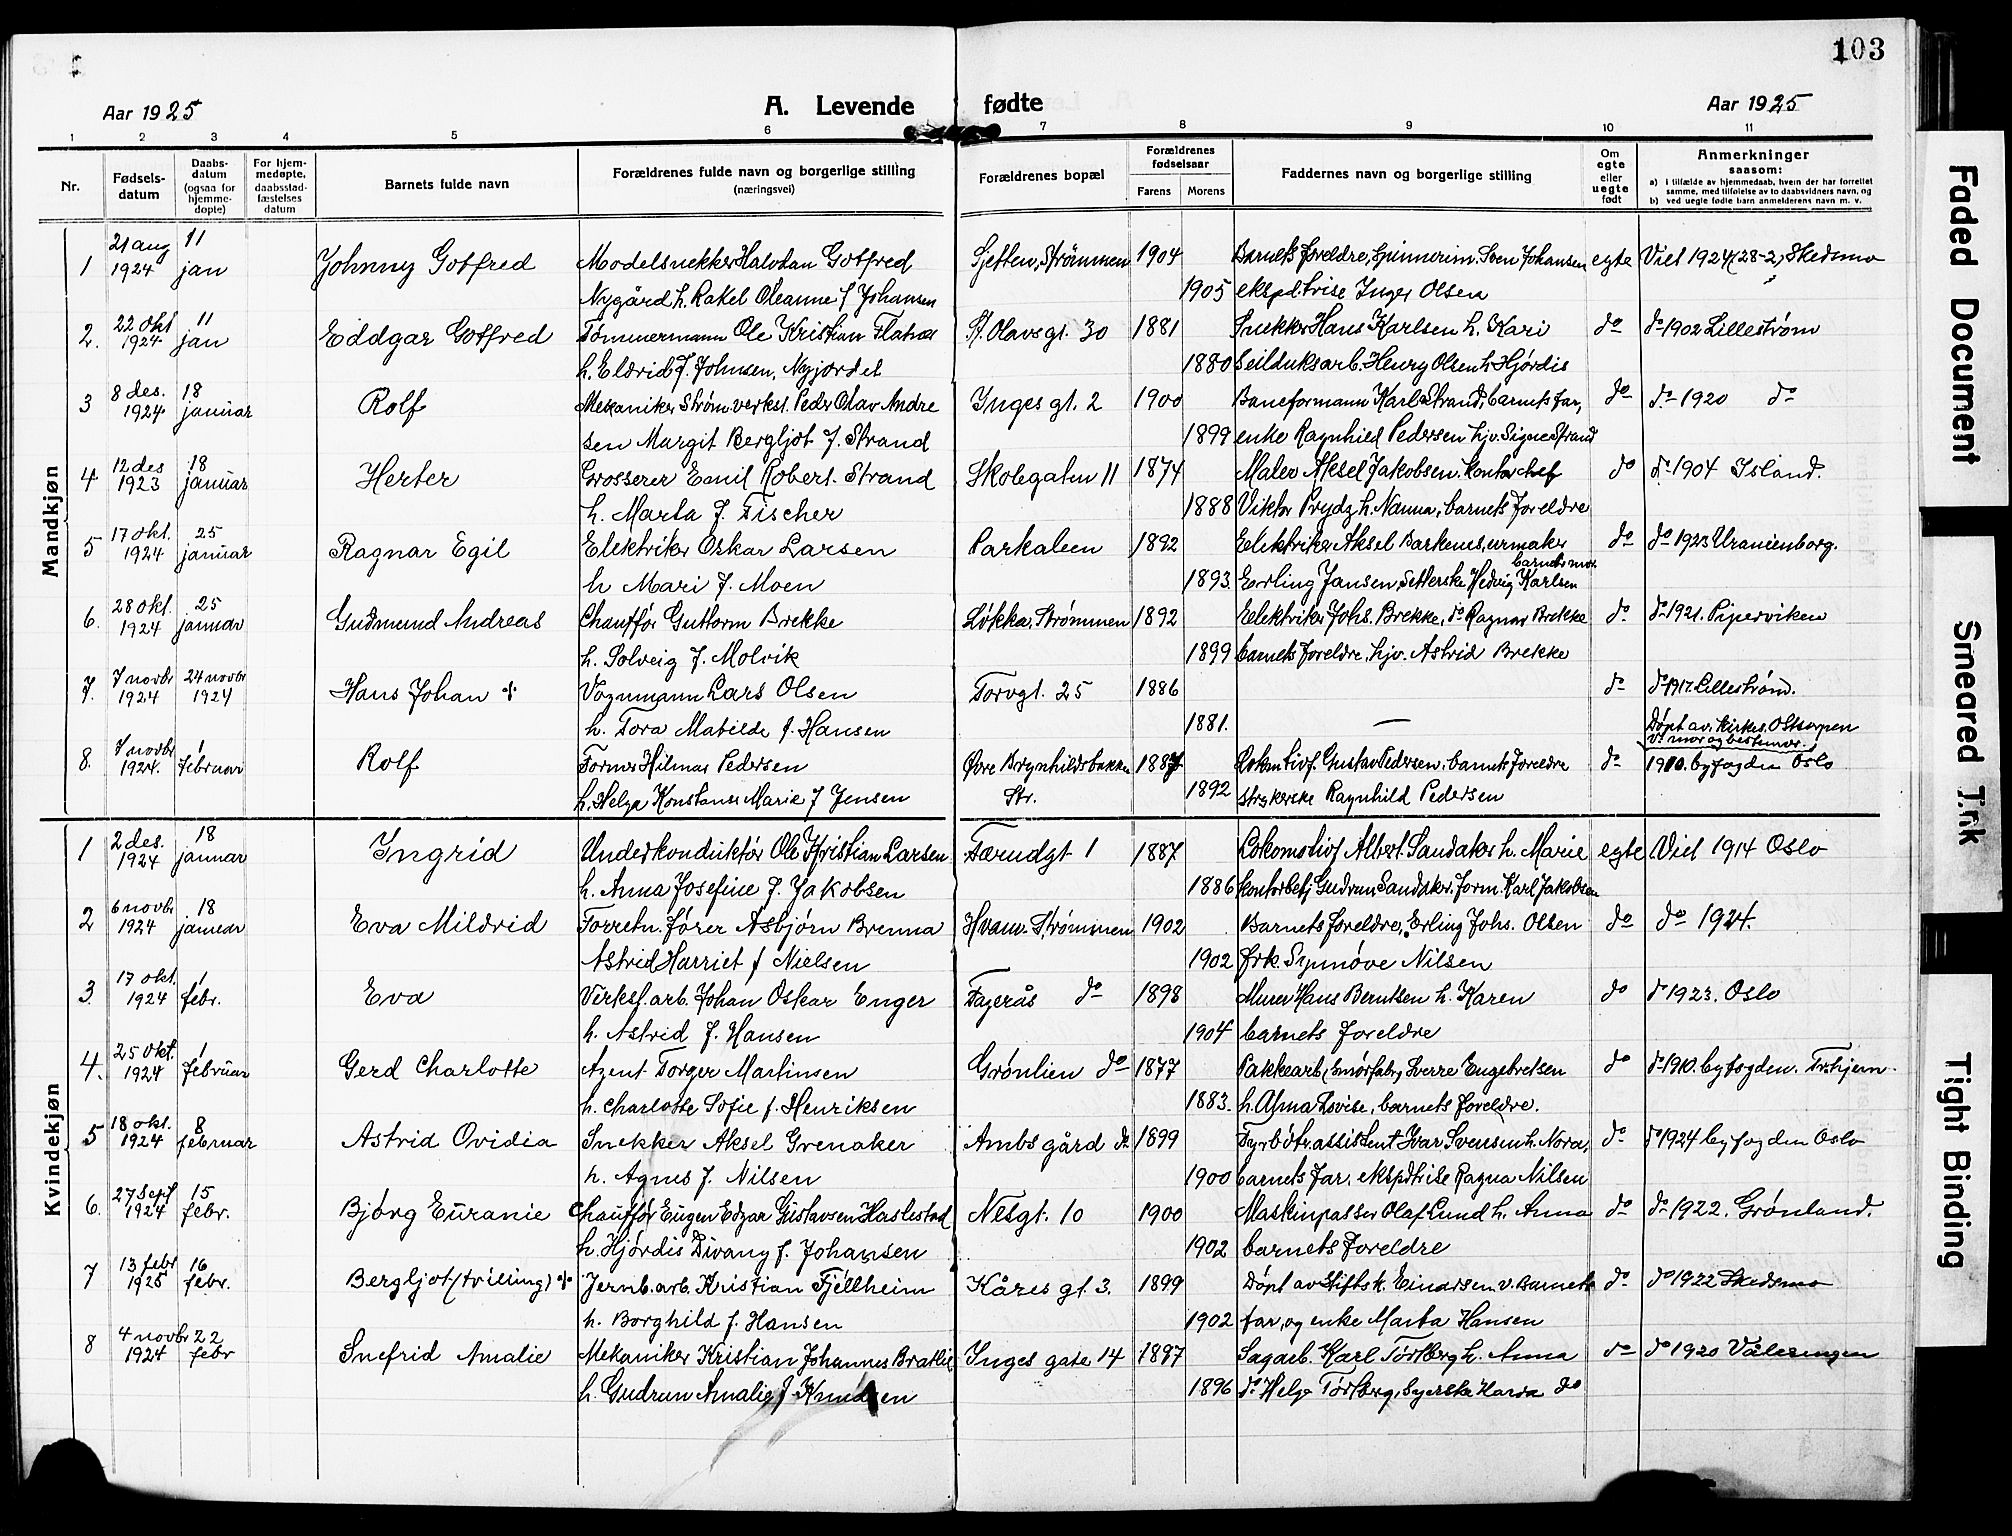 103
Aar 1925
A. Levende fødte
Aar 1925
1 2 3 4 5 6 7 8 9 10 11
Nr.
Fødsels-datum
Daabs-datum (ogsaa for hjemme-døpte)
For hjem-medøpte, daabsstad-fæstelses datum
Barnets fulde navn
Forældrenes fulde navn og borgerlige stilling (næringsvei)
Forældrenes bopæl
Forældrenes fødselsaar
Farens Morens
Faddernes navn og borgerlige stilling
Om egte eller uegte født
Anmerkninger saasom:
a) i tilfælde av hjemmedaab, hvem der har forrettet samme, med tilføielse av to daabsvidners navn, og
b) ved uegte fødte barn anmelderens navn m. v.
Mandkjøn
1 21 aug 1924 11 jan Johnny Gotfred Modelsnekker Halvdan Gotfred Sjetten, Strømmen 1904 Barnets foreldre, Spinnerim. Sven Johansen egte Viet 1924 (28-2) Skedsmo
Nygård h. Rakel Oleanne f Johansen 1905 ekspdtrise Inger Olsen
2. 22 okt 1924 11 jan Eddgar Gotfred Tømmermann Ole Kristian Flatnes St. Olavsgt. 30 1881 Snekker Hans Karlsen h. Kari do do 1902 Lillestrøm
h. Eldrid f. Johnsen, Nyjordet 1880 Seilduksarb. Henry Olsen h Hjørdis
3 8 des. 1924 18 januar Rolf Mekaniker Strøm. verkst. Peder Olav Andre Inges gt. 2 1900 Baneformann Karl Strand, barnets far, do do 1920 do
sen Margit Bergljot f. Strand 1899 enke Ragnhild Pedersen hjv. Signe Strand
4 12 des 1923 18 januar Herter Grosserer Emil Robert Strand Skolegaten 11 1874 Maler Aksel Jakobsen. Kontorchef do do 1904 Island.
h. Marta f. Fischer 1888 Viktor Prydz h. Nanna, barnets foreldre
5 17 okt. 1924 25 januar Ragnar Egil Elektriker Oskar Larsen Parkaleen 1892 Elektriker Aksel Barkenes, urmaker do do 1923 Uranienborg.
h Mari f. Moen 1893. Erling Jansen, Setterske Hedvig Karlsen barnets mor.
6. 28 okt. 1924 25 januar Gudmund Andreas Chauffør Guttorm Brekke Løkka, Strømmen 1892 Elektriker Johs. Brekke, do Ragnar Brekke do do 1921. Piperviken
h. Solveig f. Molvik 1899 barnets foreldre. hjv. Astrid Brekke
7. 7 novbr 1924 24 novbr 1924 Hans Johan ✢ Vognmann Lars Olsen Torvgt. 25 1886 do do 1917. Lillestrøm.
h. Tora Matilde f. Hansen 1881. — Døpt av Kirkes. Ostkorpen
v. mor og bestemor.
8. 7 novbr 1924. 1 februar Rolf Former Hilmar Pedersen Øvre Brynhildsbakken 1887 Lokmtivf. Gustav Pedersen, barnets foreldre do 1910. byfogden Oslo
h. Helga Konstanse Marie f Jensen Str. 1892 Strykerske Ragnhild Pedersen
Kvindekjøn
1 2 des. 1924 18 januar Ingrid Underkonduktør Ole Kristian Larsen Færudgt 1 1887 Lokomotivf Albert Sandaker h. Marie egte Viet 1914 Oslo
h. Anna Josefine f. Jakobsen 1886 kontorbetj Gudrun Sandaker. Form. Karl Jakobsen
2 6 novbr 1924 18 januar Eva Mildrid Forretn. fører Asbjørn Brenna Hvam. Strømmen 1902 Barnets foreldre, Erling Johs. Olsen do do 1924.
Astrid Harriet f Nielsen 1902 Frk. Synnøve Nilsen
3. 17 okt. 1924 1 febr. Eva Verkst. arb. Johan Oskar Enger Fagerås do 1898 Murer Hans Berntsen h. Karen do do 1923. Oslo
h. Astrid f. Hansen 1904 barnets foreldre
4. 25 okt. 1924 1 februar Gerd Charlotte Agent Torger Martinsen Grønlien do 1877 Pakkearb. (Smørfabr) Sverre Engebretsen do do 1910. byfogden. Trhjem.
h. Charlotte Sofie f. Henriksen 1883. h. Alma Lovise, barnets foreldre.
5 18 okt. 1924 8 februar Astrid Ovidia Snekker Aksel Grenaker Ambs gård do 1899 Fyrbøtr. assistent Ivar Svensen h. Nora, do do 1924 byfogden Oslo
h. Agnes f. Nilsen 1900 barnets far, ekspdtrise Ragna Nilsen
6. 27 Sept 1924 15 febr. Bjørg Euranie Chauffør Eugen Edgar Gustavsen Haslestad Nesgt. 10 1900 Maskinpasser Olaf Lund h. Anna do do 1922. Grønland.
h. Hjørdis Divany f. Johansen 1902 barnets foreldre
7 13 febr 1925 16 febr. Bergljot (tvilling) ✢ Jernb. arb. Kristian Fjellheim Kåres gt. 3. 1899 Døpt av stiftsk. Einarsen v. Barnets do do 1922 Skedsmo
h. Borghild f. Hansen 1902 far, og enke Marta Hansen
8 4 novbr 1924 22 febr Snefrid Amalie Mekaniker Kristian Johannes Bratlie Inges gate 14 1897 Sagarb. Karl Torsberg h. Anna do do 1920 Vålerengen
h. Gudrun Amalie f. Knudsen 1896 do Helge Torsberg, Syerske Harda do
Faded Document
Smeared Ink
Tight Binding